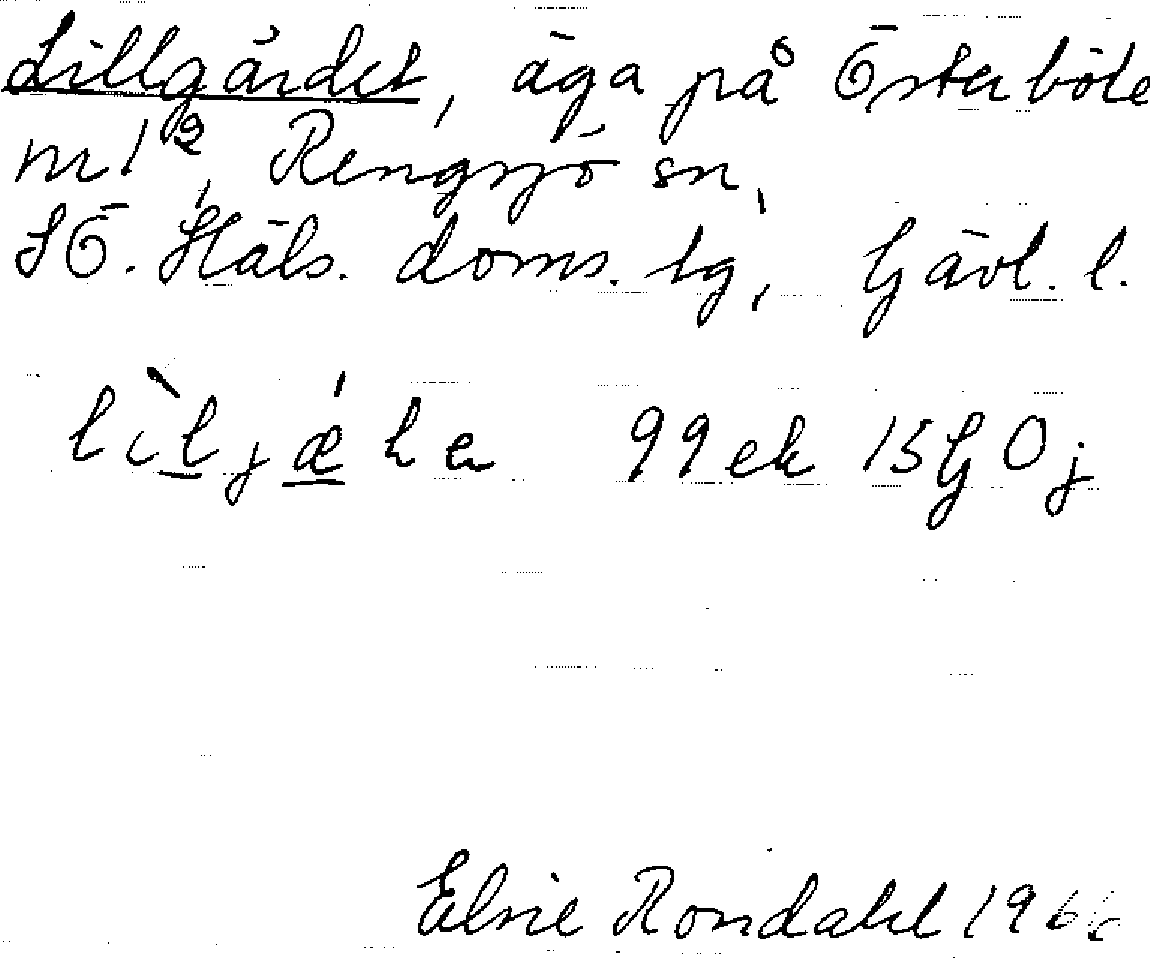 Lillgärdet, äga på Österböle
nr 1², Rengsjö sn,
SÖ. Häls. doms. tg, Gävl. l.
99 ek 15G0j
Elsie Rondahl 1966